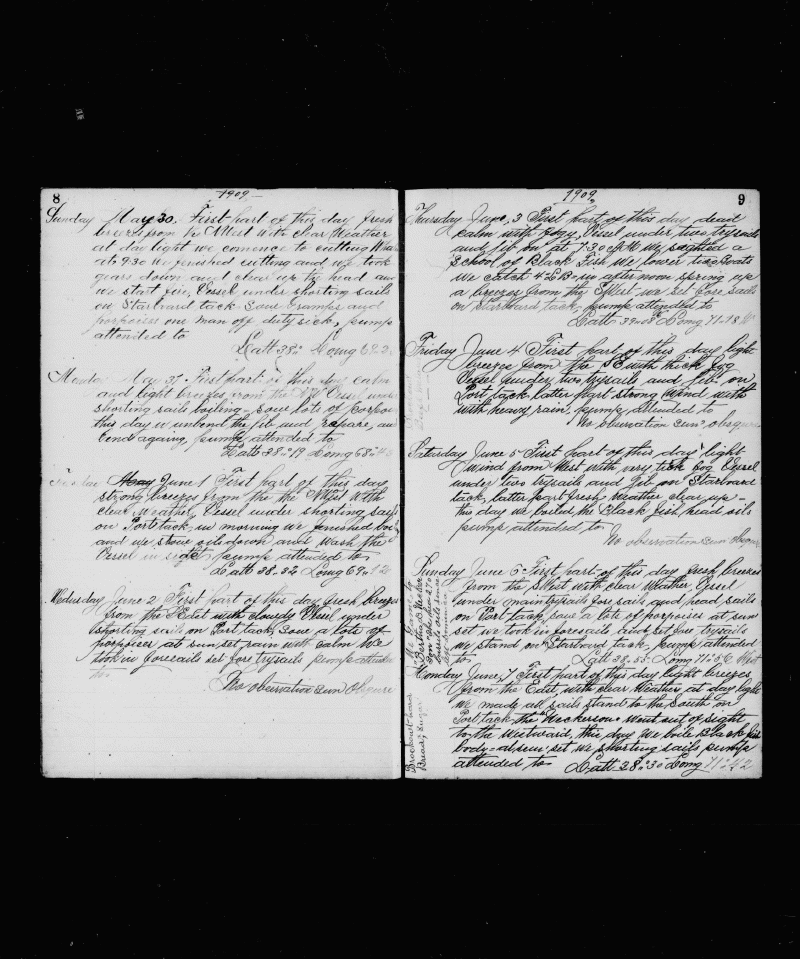 8
1909
Sunday May 30. First part of this day fresh
breezes from the NWest With clear Weather
at day light we comence to cutting Whale
at. 9.30 We fenished cutting and we took
gears down and clear up the head and
we start fire, Vessel under shorting sails
on Starboard tack Soue Gramps and
porpoises one man off duty sick, pump
attended to
Latt 38" Lomg 69.
Monday May 31 First part of this day calm
and light breezes from the Vessel under
shorting sails boiling, soue lots of porpoi
this day we unbend the jib and repare, an
bend againg, pump attended to
Latt 38" 19 Lomg 68"
May June 1 First part of this day
strong breezes from the the NWest With
clear Weather, Vessel under shorting sails
on Port tack, in morning we fenished boi
and we stowe oil down and Wash the
Vessel in pump attended to
Latt 38.32 Lomg 69.12
Wednesday June 2 First part of this day fresh breezes
from the NEast with cloudy Vessel under
shorting sails on Port tack, Soue a lots of
porpoises at sun set rain with calm We
took in foresails set fore trysails pump attende
to.
No obserration sun Obsqure
1909
9
Thursday June, 3 First part of this day dead
calm with fogy, Vessel under two trysails
and jib on at 7.30 A.M We sighted a
School of Black Fish We lower two Boats
We catch 4 B in after noon spring up
a breezes from the SWest, we set fore sails
on starboard tack, pump attended to
Latt 39"08 Lomg 71"18 W
Friday June 4 First part of this day light
breezes from the SE with thick fog
Vessel under two trysails and jib. on
Port tack, latter part strong wind with
with heavy rain, pump attended to
No obseration sun" obsqure
Saturday June 5 First part of this day light
wind from West with very tick fog Vessel
under two trysails and jib on Starboard
tack, latter part fresh Weather clear up -
this day we boiled the Black fish head oil
pump attended to
No obserration sun Obsqure
Sunday June 6 First part of this day fresh breezes
from the SWest with clear Weather, Vessel
under maintrysails fore sails and head sails
on Port tack, soue a lots of porpoises at sun
set we took in foresails and set fore trysails
we stand on Starboard tack, pump attended
to Latt 38.55 Long 71"56 West
Monday June, 7 First part of this day light breezes
from the East, with clear Weather, at day light
We made all sails stand to the South on
Port tack, the Weckerson Went out of sight
to the Westward, this day We boile Black fish
body = at sun set we shorting sails pump
attended to Latt 38"30 Lomg 71"42
Bread, & Sugar